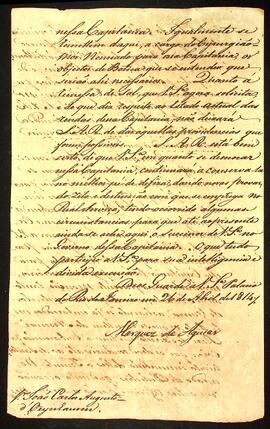 nessa Capitania. Igualmente se
remettem daqui, a cargo do Cirurgião
Mor Nomeado para essa Capitania, os
objectos de Botica que se entendeu que
serião ahi necessarios. Quanto á
remessa de Sal, que V. S.ª agora solicita
e a que diz respeito ao estado actual das
rendas dessa Capitania, não deixará
S. A. R. de dar aquellas providencias que
forem possiveis. S. A. R. está bem
certo, de que V. S.ª em quanto se demorar
nessa Capitania, continuará a conserva-la
no melhor pé de defeza, dando novas provas
do zelo e distincção com que se emprega no
Real Serviço, tendo occorrido algumas
circunstancias para que até ao presente
ainda se não ache aqui o successor de V. S.ª no
Governo dessa Capitania. O que tudo
participo a V. S.ª para sua intelligencia e
devida execução.
Deos Guarde a V. S.ª Palacio
do Rio de Janeiro em 26 de Abril de 1814
Marquez de Aguiar
S.r João Carlos Augusto
d'Oeynhausen.